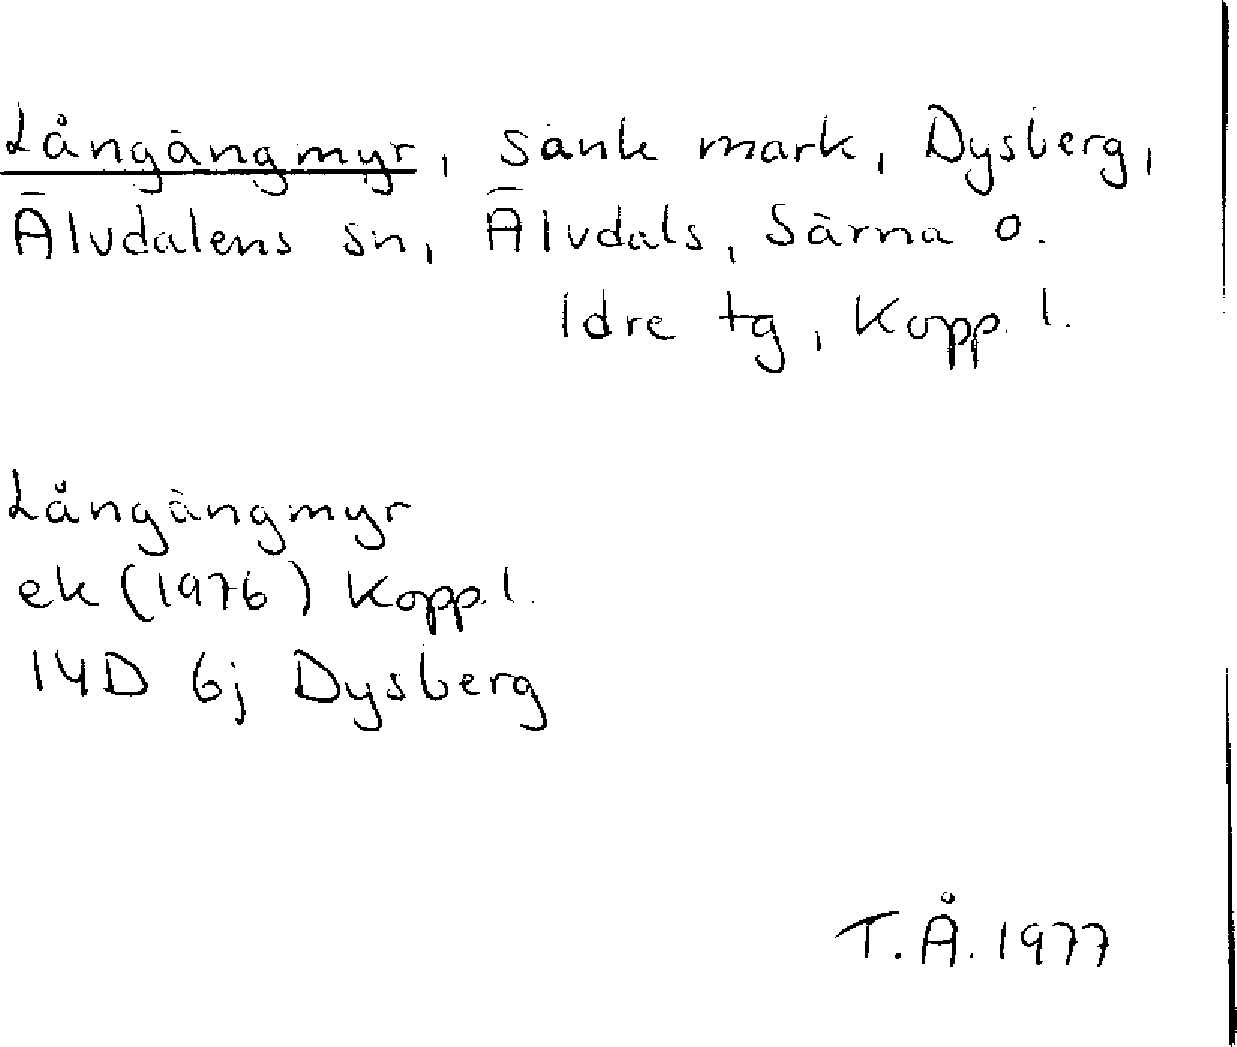 Långängmyr, sank mark, Dysberg,
Älvdalens sn, Älvdals, Särna o.
Idre tg, Kopp. l.
Långängmyr
ek (1976) Kopp. l.
14D 6j Dysberg
T.Å. 1977